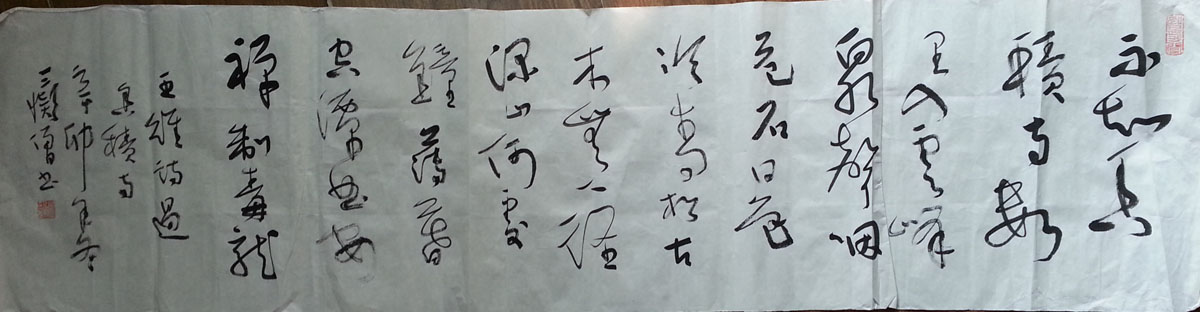 不知香
積寺數
里入雲峰
泉聲咽
危石日色
冷青松古
木無人徑
深山何處
鐘薄暮
空潭曲安
禪制毒龍
王維詩過
香積寺
辛卯年冬
三僧书